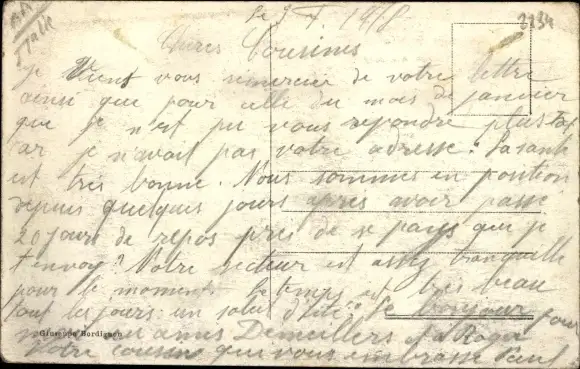 2234
Talk
Le 3
Chères Cousines
Je viens vous remercier de votre lettre
ainsi que pour celle du mois de janvier
que je n'est pu vous repondre plus tot
car je n'avait pas votre adresse. La santé
est très bonne. Nous sommes en position
depuis quelques jours après avoir passé
20 jours de repos près de se pays que je
t'envoy. Notre secteur est assez tranquille
pour le moment. Le temps est très beau
tout les jours: un soleil d'été. Le bonjour pour
Giuseppe Bordignon
amis Demeillers
Votre cousin qui vous embrasse